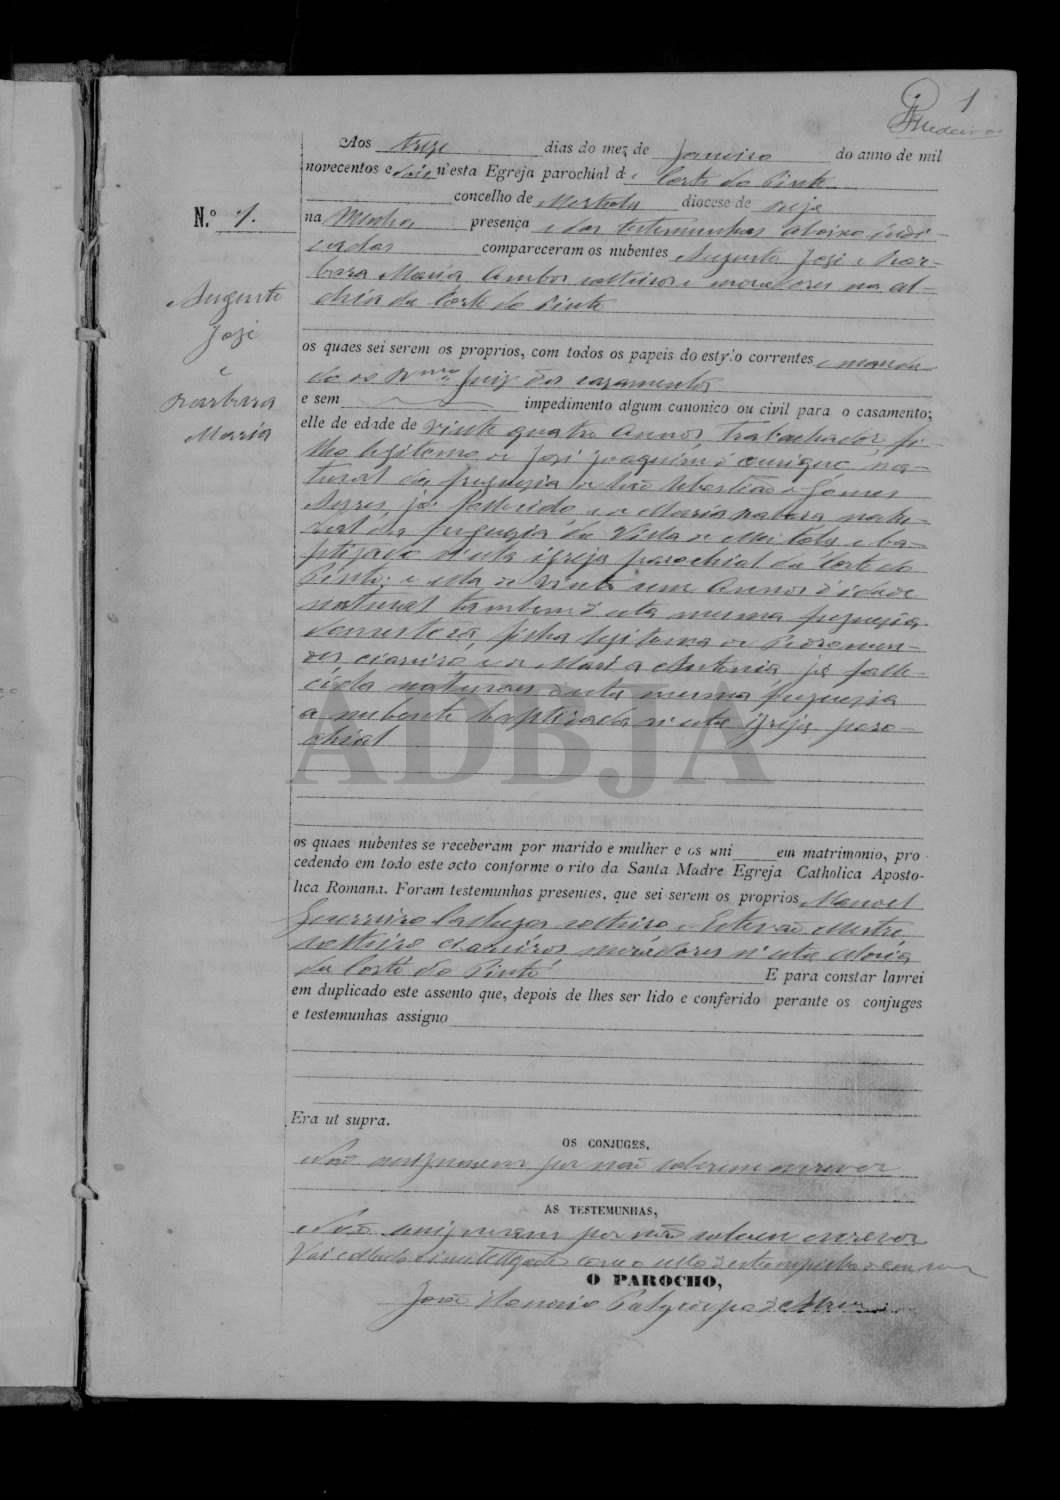 1
Aos treze dias do mez de Janeiro do anno de mil
novecentos e dois n'esta Egreja parochial de Corte do Pinto
concelho de Mertola diocese de Beja
N.º 1.
na Minha presença e das testemunhas abaixo indi-
cadas compareceram os nubentes Augusto José e Bar-
bara Maria ambos solteiros e moradores na al-
deia da Corte do Pinto
Augusto
José
e
Barbara
Maria
os quaes sei serem os proprios, com todos os papeis do estylo correntes e manda-
do do Rmo Juiz dos casamentos
e sem impedimento algum canonico ou civil para o casamento;
elle de edade de vinte quatro annos, trabalhador, fi-
lho legitimo de José Joaquim na-
tural da freguesia de São Sebastião de Gomes
Ayres, já fallecido e de Maria natu-
ral da freguesia da Villa de Mertola e ba-
ptizado n'esta igreja parochial da Corte do
Pinto; e ella de vinte um annos d'idade
natural tambem d'esta mesma freguesia
filha legitima de
e de Maria Antonia já falle-
cida naturaes desta mesma freguesia
a nubente baptizada n'esta igreja paro-
chial
ADBJA
os quaes nubentes se receberam por marido e mulher e os uni em matrimonio, pro
cedendo em todo este acto conforme o rito da Santa Madre Egreja Catholica Aposto-
lica Romana. Foram testemunhas presentes, que sei serem os proprios Manoel
Guerreiro solteiro e Estevão Mestre
solteiro moradores n'esta aldeia
da Corte do Pinto E para constar lavrei
em duplicado este assento que, depois de lhes ser lido e conferido perante os conjuges
e testemunhas assigno
Era ut supra.
OS CONJUGES,
Não assignaram por não saberem escrever
AS TESTEMUNHAS,
Não assignaram por não saberem escrever
O PAROCHO,
João